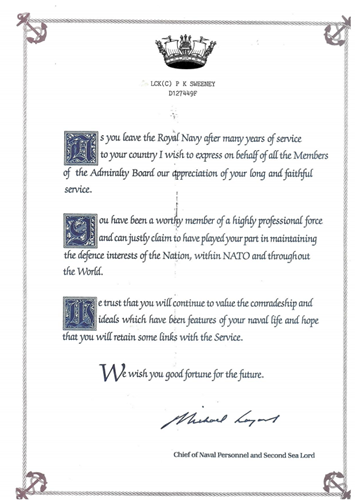 LCK(C) P K SWEENEY
D127449F
As you leave the Royal Navy after many years of service
to your country I wish to express on behalf of all the Members
of the Admiralty Board our appreciation of your long and faithful
service.
You have been a worthy member of a highly professional force
and can justly claim to have played your part in maintaining
the defence interests of the Nation, within NATO and throughout
the World.
We trust that you will continue to value the comradeship and
ideals which have been features of your naval life and hope
that you will retain some links with the Service.
We wish you good fortune for the future.
Michael Layard
Chief of Naval Personnel and Second Sea Lord